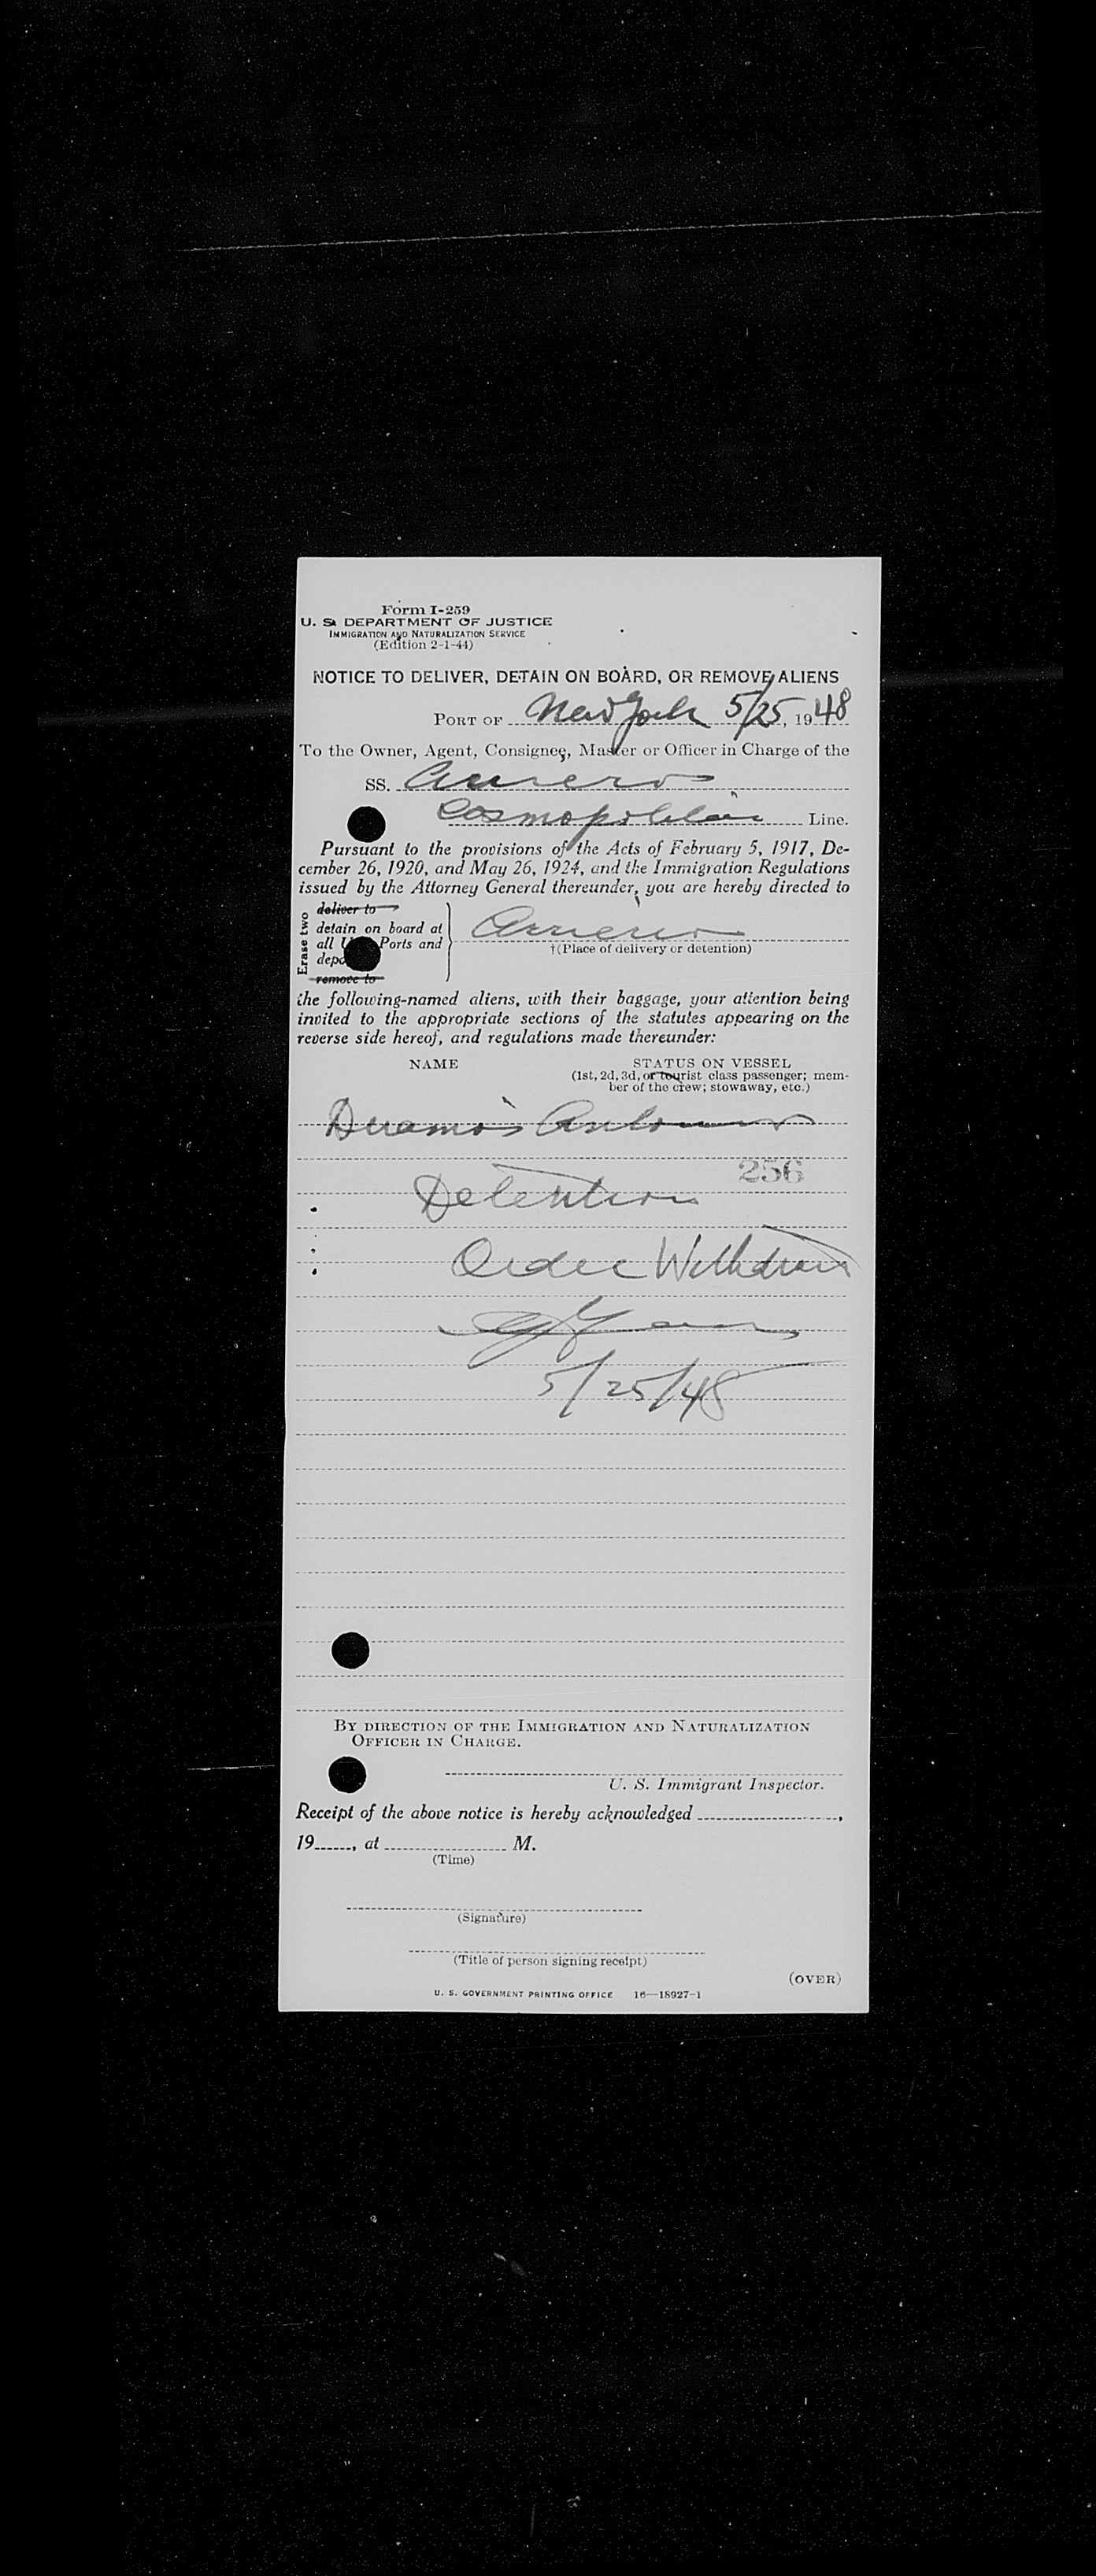 Form I-259
U. S. DEPARTMENT OF JUSTICE
IMMIGRATION AND NATURALIZATION SERVICE
(Edition 2-1-44)
NOTICE TO DELIVER, DETAIN ON BOARD, OR REMOVE ALIENS
PORT OF New York 5/25, 1948
To the Owner, Agent, Consignee, Master or Officer in Charge of the
SS.
Cosmopolitan Line.
Pursuant to the provisions of the Acts of February 5, 1917, De-
cember 26, 1920, and May 26, 1924, and the Immigration Regulations
issued by the Attorney General thereunder, you are hereby directed to
Erase two
deliver to
detain on board at
all U. Ports and
depo
remove to
†(Place of delivery or detention)
the following-named aliens, with their baggage, your attention being
invited to the appropriate sections of the statutes appearing on the
reverse side hereof, and regulations made thereunder:
NAME STATUS ON VESSEL
(1st, 2d, 3d, or tourist class passenger; mem-
ber of the crew; stowaway, etc.)
256
Detention
Order Withdrawn
5/25/48
BY DIRECTION OF THE IMMIGRATION AND NATURALIZATION
OFFICER IN CHARGE.
U. S. Immigrant Inspector.
Receipt of the above notice is hereby acknowledged ,
19 , at M.
(Time)
(Signature)
(Title of person signing receipt)
(OVER)
U. S. GOVERNMENT PRINTING OFFICE 16—18927-1